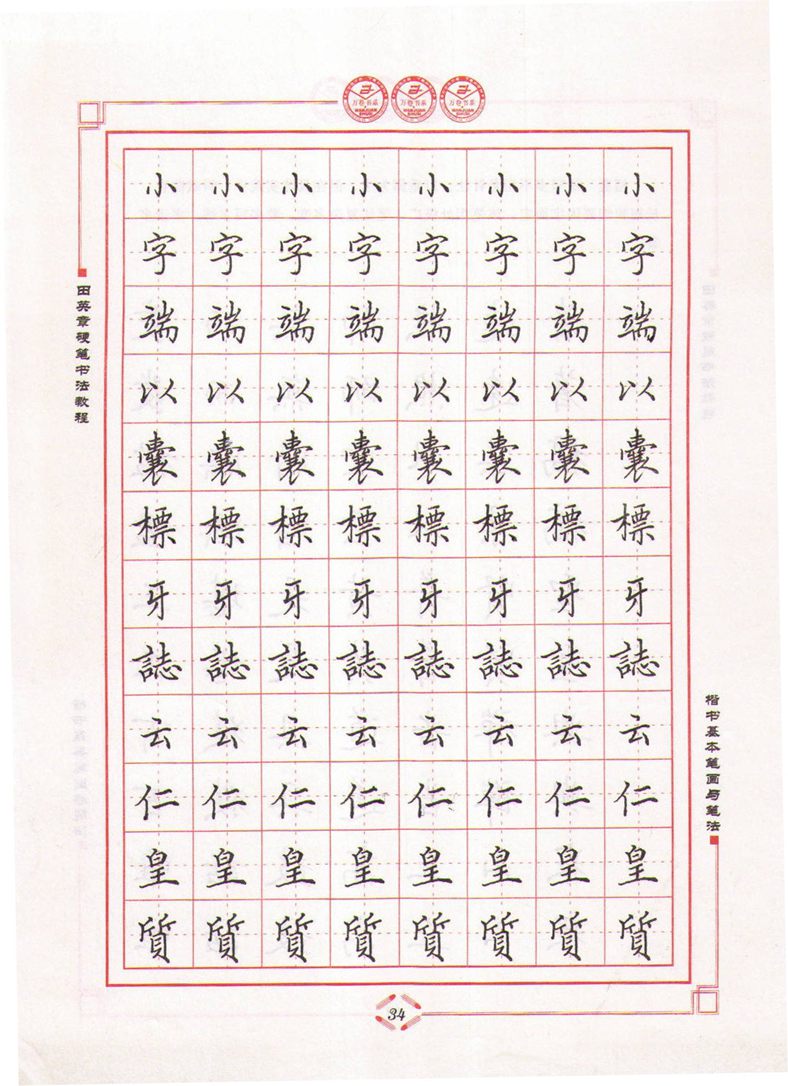 万卷书系 万卷书系 万卷书系
田英章硬笔书法教程
小小小小小小小小
字字字字字字字字
端端端端端端端端
以以以以以以以以
囊囊囊囊囊囊囊囊
標標標標標標標標
牙牙牙牙牙牙牙牙
誌誌誌誌誌誌誌誌
云云云云云云云云
仁仁仁仁仁仁仁仁
皇皇皇皇皇皇皇皇
質質質質質質質質
楷书基本笔画与笔法
34